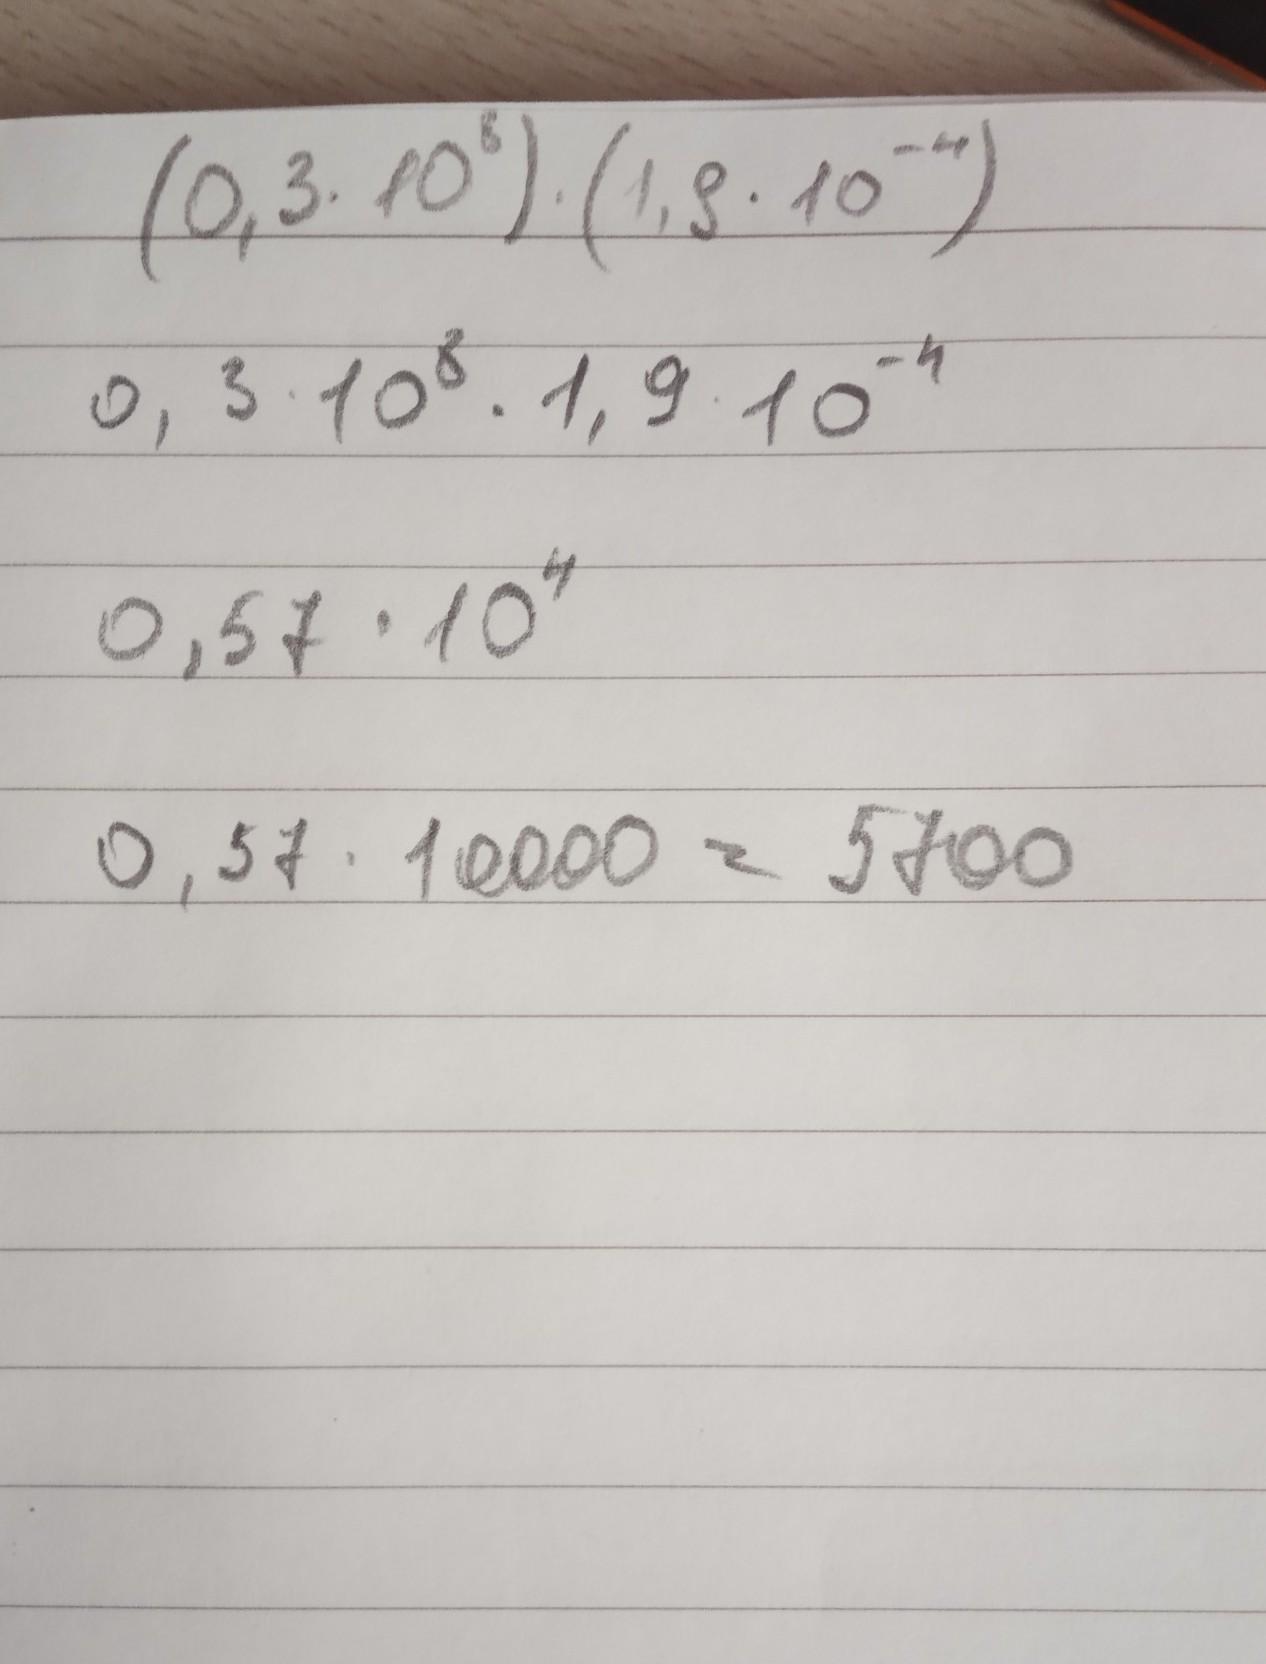 (0,3·10⁸)·(1,9·10⁻⁴)
0,3·10⁸·1,9·10⁻⁴
0,57·10⁴
0,57·10000=5700